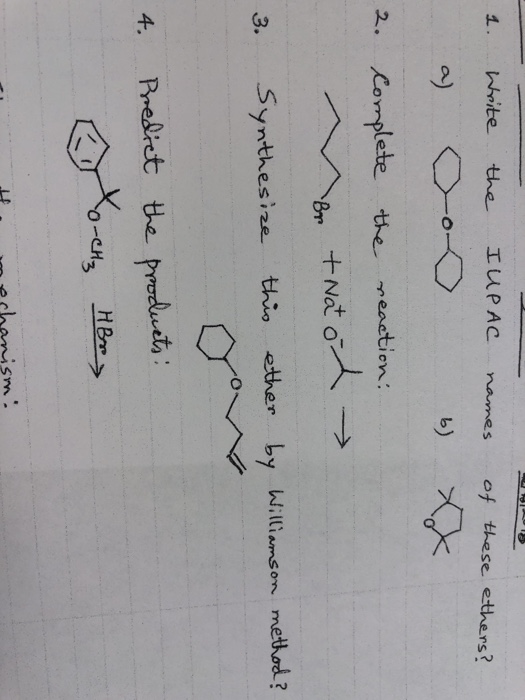 1. Write the IUPAC names of these ethers?
a) O b) O
2. Complete the reaction:
Br + Na+ O- →
3. Synthesize this ether by Williamson method?
O
4. Predict the products:
O-CH3 HBr →
mechanism: